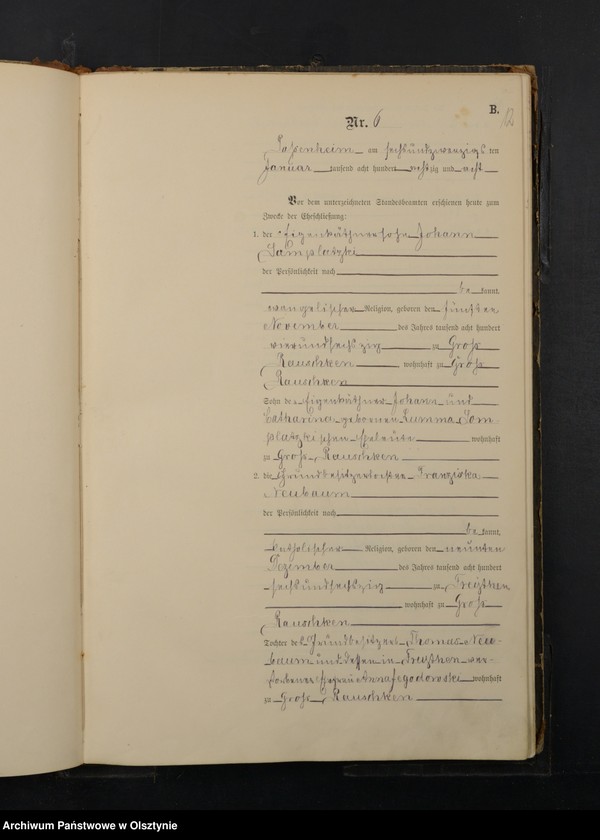 B.
12
Nr. 6
Passenheim am sechsundzwanzigs ten
Januar tausend acht hundert achtzig und acht
Vor dem unterzeichneten Standesbeamten erschienen heute zum
Zwecke der Eheschließung:
1. der Eigenkäthnersohn Johann
Samplatzki
der Persönlichkeit nach
be kannt,
evangelischer Religion, geboren den fünften
November des Jahres tausend acht hundert
vierundsechszig zu Groß
Rauschken wohnhaft zu Groß
Rauschken
Sohn des Eigenkäthner Johann und
Catharina geborenen Kumma Sam
platzkischen Eheleute wohnhaft
zu Groß Rauschken
2. die Grundbesitzertochter Franziska
Neubaum
der Persönlichkeit nach
be kannt,
katholischer Religion, geboren den neunten
Dezember des Jahres tausend acht hundert
sechsundsechszig zu
wohnhaft zu Groß
Rauschken
Tochter des Grundbesitzers Thomas Neu-
baum und dessen in ver-
storbener Ehefrau wohnhaft
zu Groß Rauschken
Archiwum Państwowe w Olsztynie